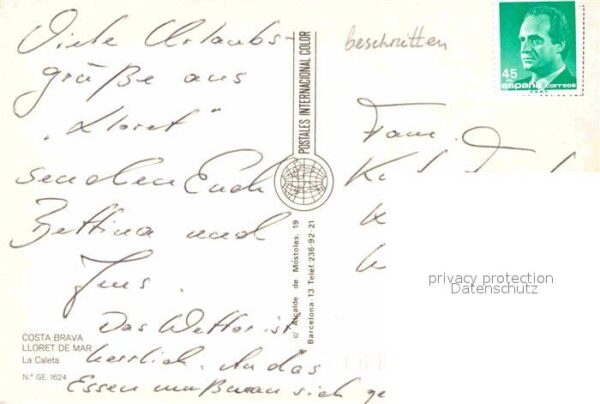 Viele Urlaubs-
grüße aus
"Lloret"
senden Euch
Bettina und
Jens.
Das Wetter ist
herrlich. An das
Essen muß man sich ge
COSTA BRAVA
LLORET DE MAR
La Caleta
N.º GE. 1624
POSTALES INTERNACIONAL COLOR
c/ Alcalde de Móstoles, 19
Barcelona-13 Telef. 236-92-21
beschnitten
45
PTA
españa correos
Fam.
privacy protection
Datenschutz